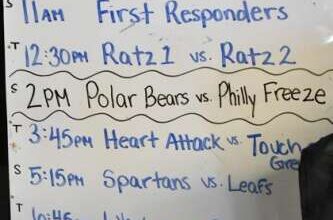 S 11AM First Responders
T 12:30PM Ratz 1 vs. Ratz 2
S 2PM Polar Bears vs. Philly Freeze
T 3:45PM Heart Attack vs. Touch
Gre
S 5:15PM Spartans vs. Leafs
T